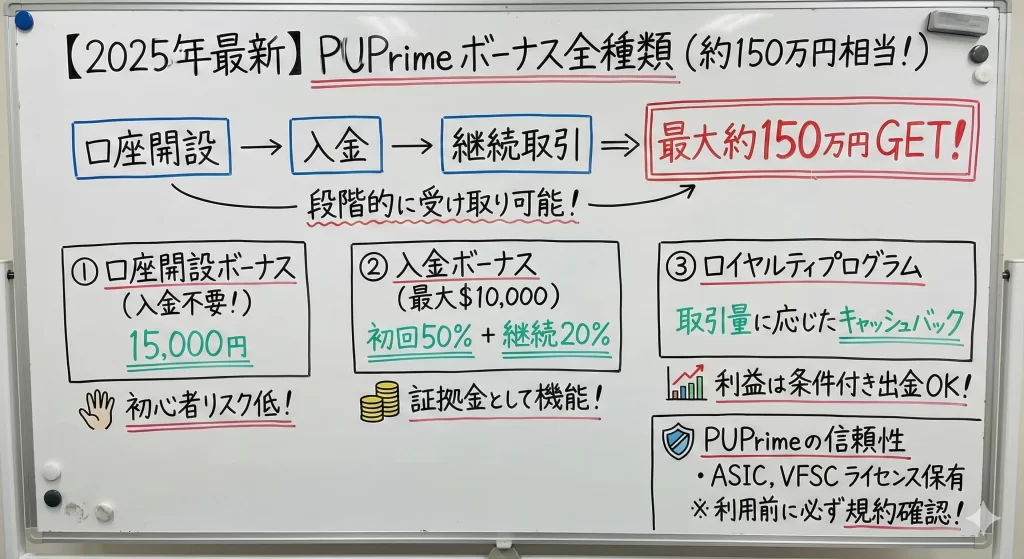 【2025年最新】PUPrimeボーナス全種類(約150万円相当!)
口座開設 → 入金 → 継続取引 ⇒ 最大約150万円GET!
段階的に受け取り可能!
① 口座開設ボーナス
(入金不要!)
15,000円
初心者リスク低!
② 入金ボーナス
(最大$10,000)
初回50% + 継続20%
証拠金として機能!
③ ロイヤルティプログラム
取引量に応じたキャッシュバック
利益は条件付き出金OK!
PUPrimeの信頼性
・ASIC, VFSC ライセンス保有
※利用前に必ず規約確認!